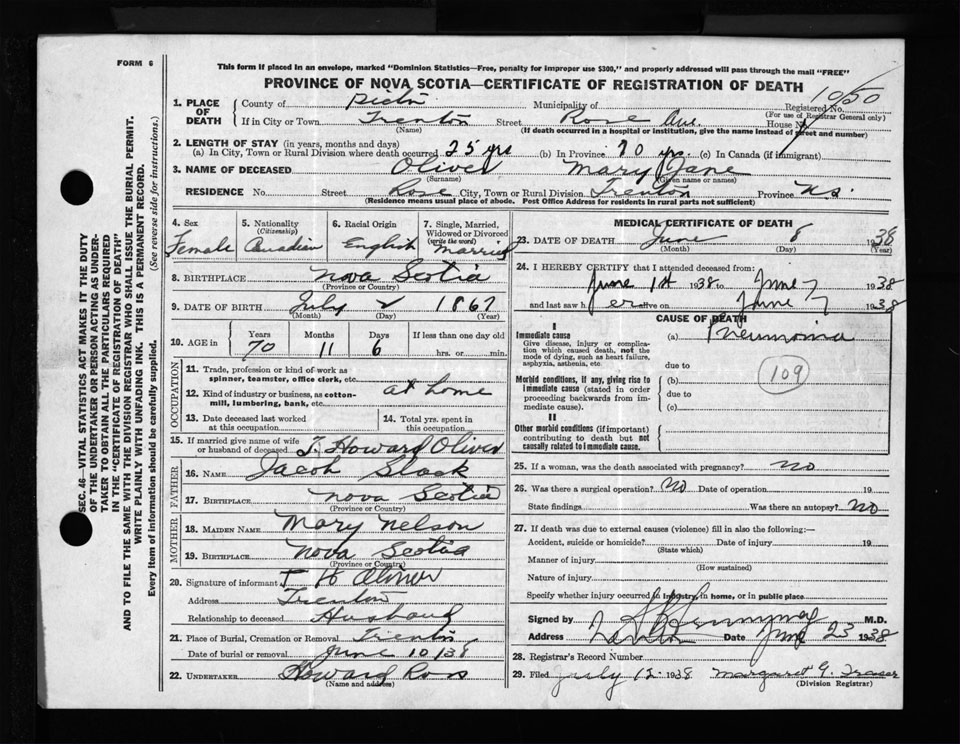 FORM 6
This form if placed in an envelope, marked "Dominion Statistics—Free, penalty for improper use $300," and properly addressed will pass through the mail "FREE"
PROVINCE OF NOVA SCOTIA—CERTIFICATE OF REGISTRATION OF DEATH
1050
Registered No.
(For use of Registrar General only)
1. PLACE OF DEATH County of Pictou Municipality of
If in City or Town Trenton Street Rose Ave. House No
(Name) (If death occurred in a hospital or institution, give the name instead of street and number)
2. LENGTH OF STAY (in years, months and days)
(a) In City, Town or Rural Division where death occurred 25 yrs (b) In Province 70 yrs. (c) In Canada (if immigrant)
3. NAME OF DECEASED Oliver Mary Jane
(Surname) (Given name or names)
RESIDENCE No. Street Rose City, Town or Rural Division Trenton Province N.S.
(Residence means usual place of abode. Post Office Address for residents in rural parts not sufficient)
4. Sex Female
5. Nationality (Citizenship) Canadian
6. Racial Origin English
7. Single, Married, Widowed or Divorced (write the word) Married
8. BIRTHPLACE Nova Scotia
(Province or Country)
9. DATE OF BIRTH July 2 1867
(Month) (Day) (Year)
10. AGE in Years 70 Months 11 Days 6 If less than one day old hrs. or min.
OCCUPATION
11. Trade, profession or kind of work as spinner, teamster, office clerk, etc.
12. Kind of industry or business, as cotton-mill, lumbering, bank, etc. at home
13. Date deceased last worked at this occupation
14. Total yrs. spent in this occupation
15. If married give name of wife or husband of deceased T. Howard Oliver
FATHER
16. NAME Jacob Slack
17. BIRTHPLACE Nova Scotia
(Province or Country)
MOTHER
18. MAIDEN NAME Mary Nelson
19. BIRTHPLACE Nova Scotia
(Province or Country)
20. Signature of informant T H Oliver
Address Trenton
Relationship to deceased Husband
21. Place of Burial, Cremation or Removal Trenton
Date of burial or removal June 10/38
22. UNDERTAKER Howard Ross
(Name and address)
MEDICAL CERTIFICATE OF DEATH
23. DATE OF DEATH June 8 1938
(Month) (Day) (Year)
24. I HEREBY CERTIFY that I attended deceased from:
June 1st 1938 to June 7 1938
and last saw h er alive on June 7 1938
CAUSE OF DEATH
I
Immediate cause
Give disease, injury or complication which caused death, not the mode of dying, such as heart failure, asphyxia, asthenia, etc.
(a) Pneumonia
due to
109
Morbid conditions, if any, giving rise to immediate cause (stated in order proceeding backwards from immediate cause).
(b)
due to
(c)
II
Other morbid conditions (if important) contributing to death but not causally related to immediate cause.
25. If a woman, was the death associated with pregnancy? no
26. Was there a surgical operation? No Date of operation 19
State findings Was there an autopsy? No
27. If death was due to external causes (violence) fill in also the following:—
Accident, suicide or homicide? Date of injury 19
(State which)
Manner of injury
(How sustained)
Nature of injury
Specify whether injury occurred in industry, in home, or in public place
Signed by M.D.
Address Date June 23 1938
28. Registrar's Record Number
29. Filed July 12 1938 Margaret G. Fraser
(Division Registrar)
SEC. 46—VITAL STATISTICS ACT MAKES IT THE DUTY
OF THE UNDERTAKER OR PERSON ACTING AS UNDER-
TAKER TO OBTAIN ALL THE PARTICULARS REQUIRED
IN THE "CERTIFICATE OF REGISTRATION OF DEATH"
AND TO FILE THE SAME WITH THE DIVISION REGISTRAR WHO SHALL ISSUE THE BURIAL PERMIT.
WRITE PLAINLY WITH UNFADING INK. THIS IS A PERMANENT RECORD.
Every item of information should be carefully supplied. (See reverse side for instructions.)